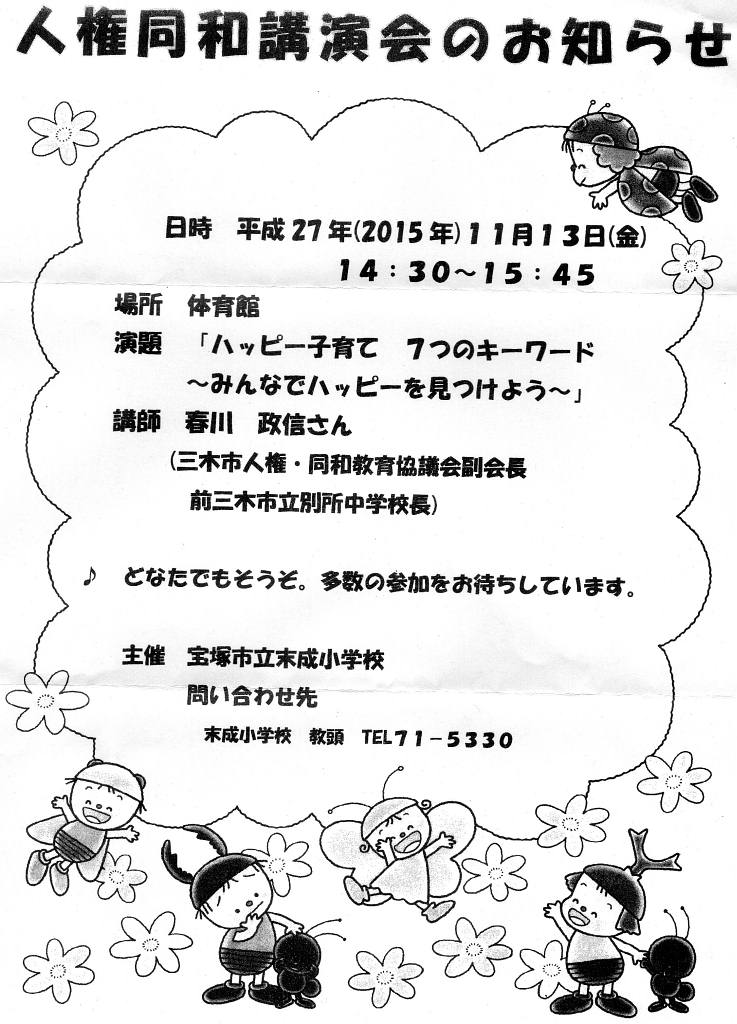 人権同和講演会のお知らせ
日時　平成27年(2015年)11月13日(金)
14：30～15：45
場所　体育館
演題　「ハッピー子育て　7つのキーワード
～みんなでハッピーを見つけよう～」
講師　春川　政信さん
(三木市人権・同和教育協議会副会長
前三木市立別所中学校長)
♪　どなたでもそうぞ。多数の参加をお待ちしています。
主催　宝塚市立末成小学校
問い合わせ先
末成小学校　教頭　TEL71－5330